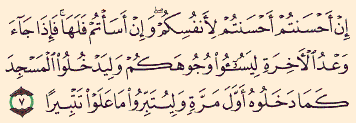 إِنْ أَحْسَنتُمْ أَحْسَنتُمْ لِأَنفُسِكُمْ ۖ وَإِنْ أَسَأْتُمْ فَلَهَا ۚ فَإِذَا جَآءَ
وَعْدُ ٱلْأَخِرَةِ لِيَسُـۥٓـُٔوا۟ وُجُوهَكُمْ وَلِيَدْخُلُوا۟ ٱلْمَسْجِدَ
كَمَا دَخَلُوهُ أَوَّلَ مَرَّةٍ وَلِيُتَبِّرُوا۟ مَا عَلَوْا۟ تَتْبِيرًا ٧